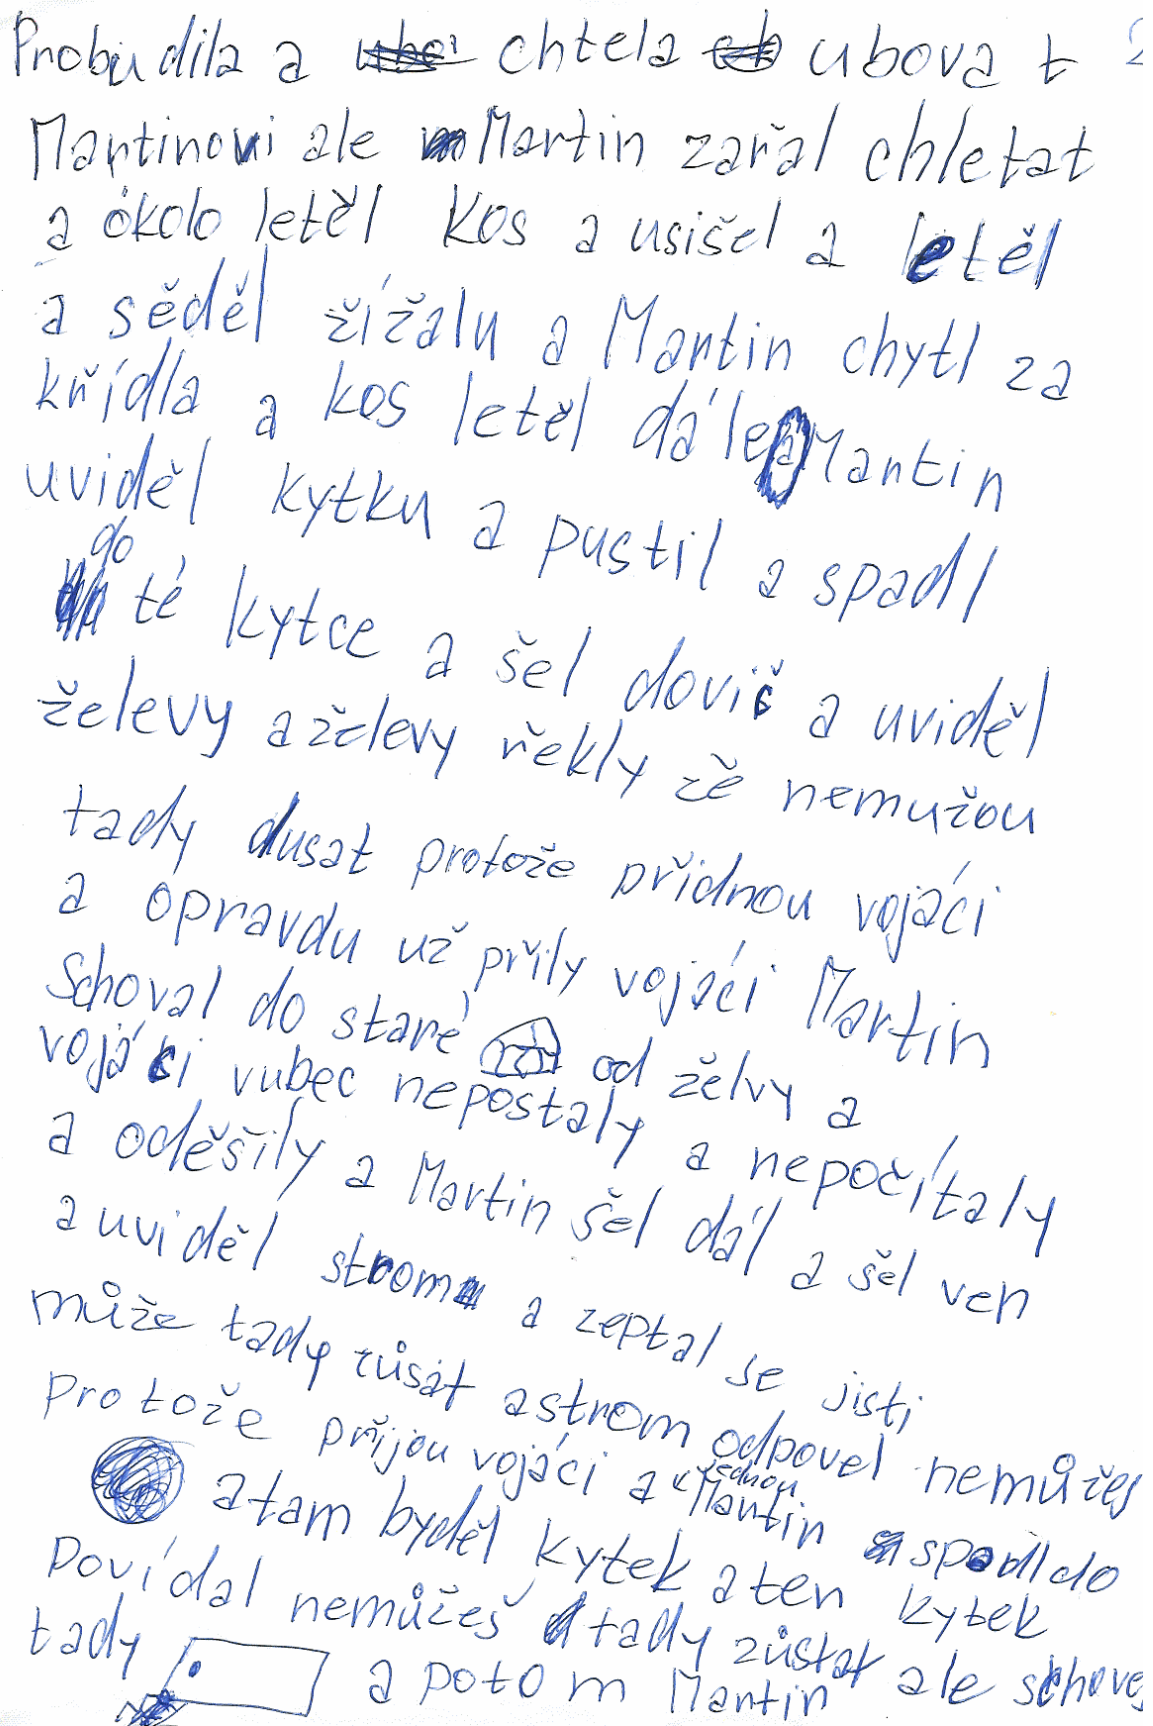 Probudila a chtela ubova t
Martinovi ale Martin začal chletat
a okolo letěl kos a usišel a letěl
a sěděl žížalu a Martin chytl za
křídla a kos letěl dále a Martin
uviděl kytku a pustil a spadl
do té kytce a šel dovič a uviděl
želevy a želevy řekly zě nemužou
tady dusat protože přidnou vojáci
a opravdu už přily vojáci Martin
Schoval do staré od želvy a
vojáci vubec nepostaly a nepočítaly
a oděšily a Martin šel dál a šel ven
a uviděl strom a zeptal se jisti
může tady zůsat a strom odpovel nemůžeš
protože přijou vojáci a jednou Martin spadl do
a tam byděl kytek a ten kytek
povídal nemůžeš tady zůstat ale schovej
tady a potom Martin